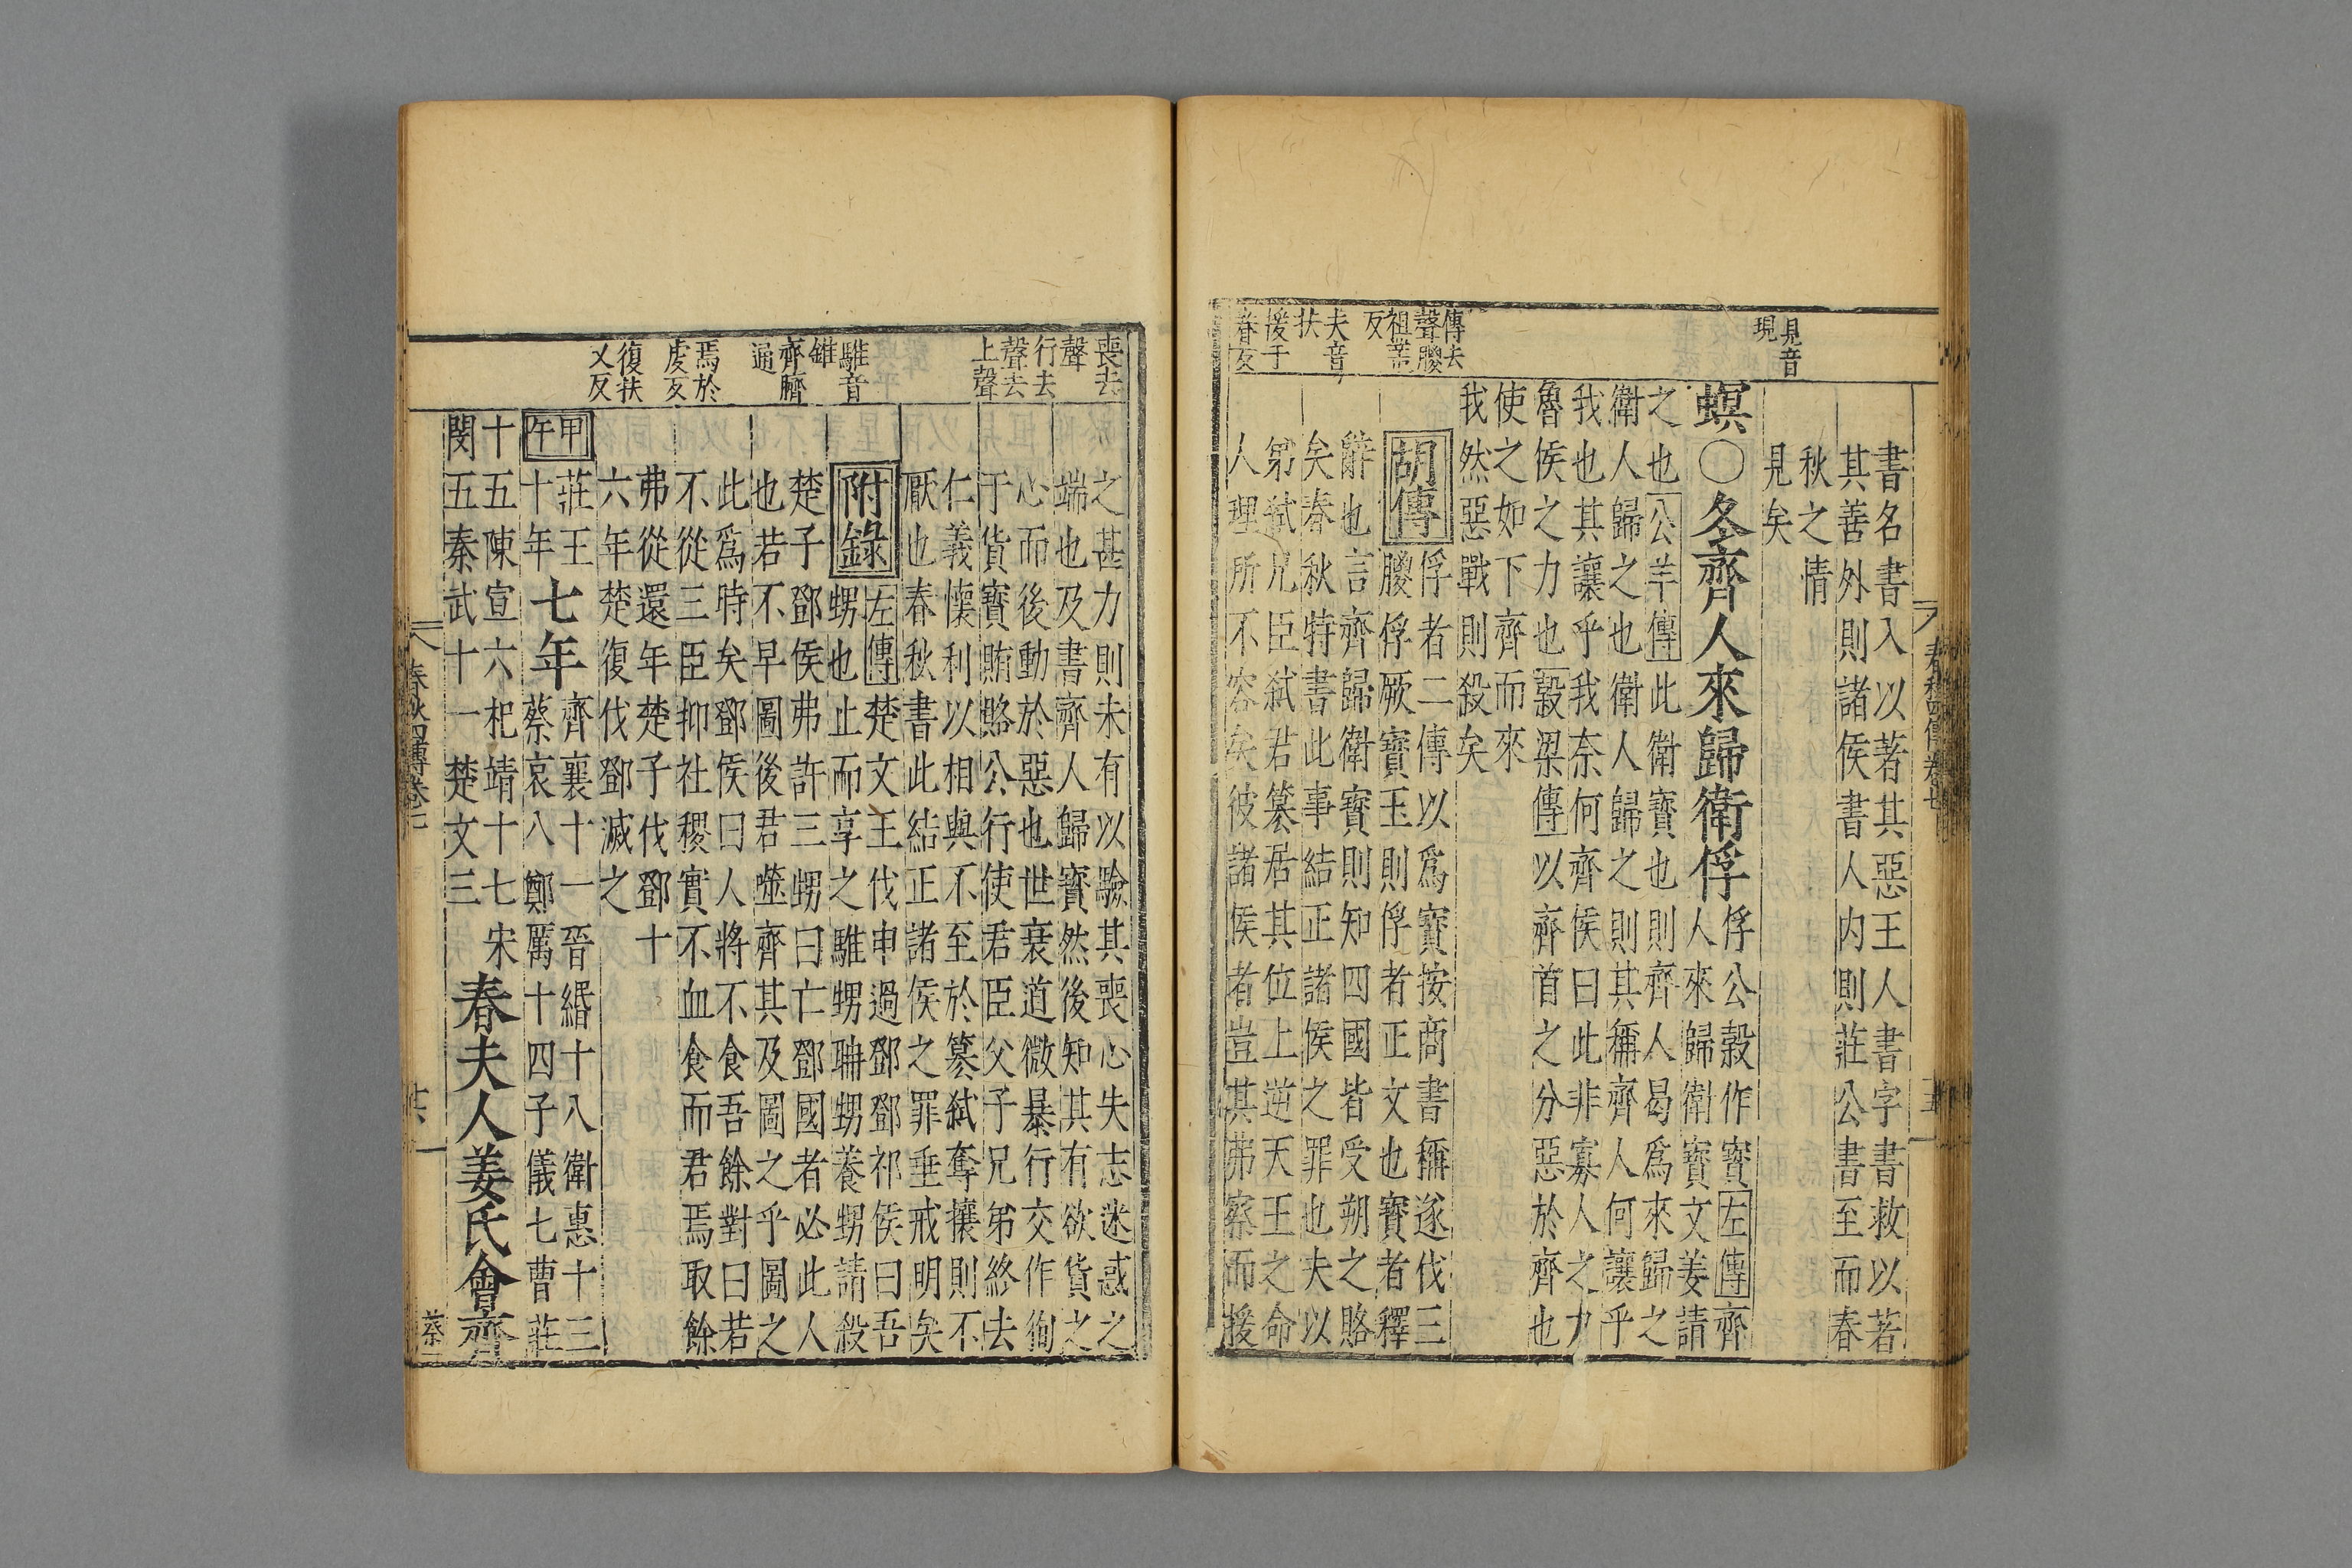 見音
現
書名書入以著其惡王人書字書救以著
其善外則諸侯書人内則莊公書至而春
秋之情
見矣
螟○冬齊人來歸衛俘
俘公榖作寳左傳齊
人來歸衛寳文姜請
之也公羊傳此衛寳也則齊人曷爲來歸之
衛人歸之也衛人歸之則其稱齊人何讓乎
我也其讓乎我奈何齊侯曰此非寡人之力
魯侯之力也榖梁傳以齊首之分惡於齊也
使之如下齊而來
我然惡戰則殺矣
傳去
聲朡
祖
反
夫音
扶
援于
眷反
胡傳
俘者二傳以爲寳按商書稱遂伐三
朡俘厥寳玉則俘者正文也寳者釋
辭也言齊歸衛寳則知四國皆受朔之賂
矣春秋特書此事結正諸侯之罪也夫以
弟弑兄臣弑君簒居其位上逆天王之命
人理所不容矣彼諸侯者豈其弗察而援
春秋四傳卷七
喪去
聲
行去
聲去
上聲
騅音
錐
齊臍
通
焉於
虔反
復扶
又反
之甚力則未有以驗其喪心失志迷惑之
端也及書齊人歸寳然後知其有欲貨之
心而後動於惡也世衰道微暴行交作徇
于貨寳賄賂公行使君臣父子兄弟終去
仁義懷利以相與不至於簒弑奪攘則不
厭也春秋書此結正諸侯之罪垂戒明矣
附錄
左傳楚文王伐申過鄧鄧祁侯曰吾
甥也止而享之騅甥聃甥養甥請殺
楚子鄧侯弗許三甥曰亡鄧國者必此人
也若不早圖後君噬齊其及圖之乎圖之
此爲時矣鄧侯曰人將不食吾餘對曰若
不從三臣抑社稷實不血食而君焉取餘
弗從還年楚子伐鄧十
六年楚復伐鄧滅之
甲午
莊王
十年
七年
齊襄十一晉緡十八衛惠十三
蔡哀八鄭厲十四子儀七曹莊
十五陳宣六杞靖十七宋
閔五秦武十一楚文三
春夫人姜氏會齊
春秋四傳卷七